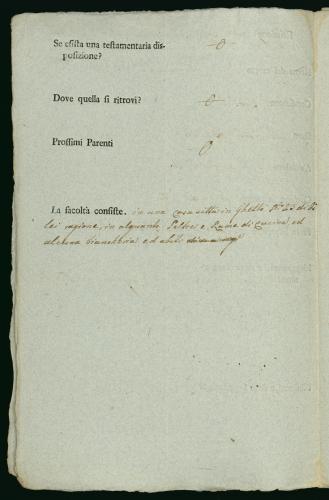 Se esista una testamentaria dis-
posizione? 0
Dove quella si ritrovi? 0
Prossimi Parenti 0
La facoltà consiste. in una Casa sitta in Ghetto N° 23 di
lei ragione, in alquanto Peltre e Rame di Cucina ed
alchuna biancheria ed abiti